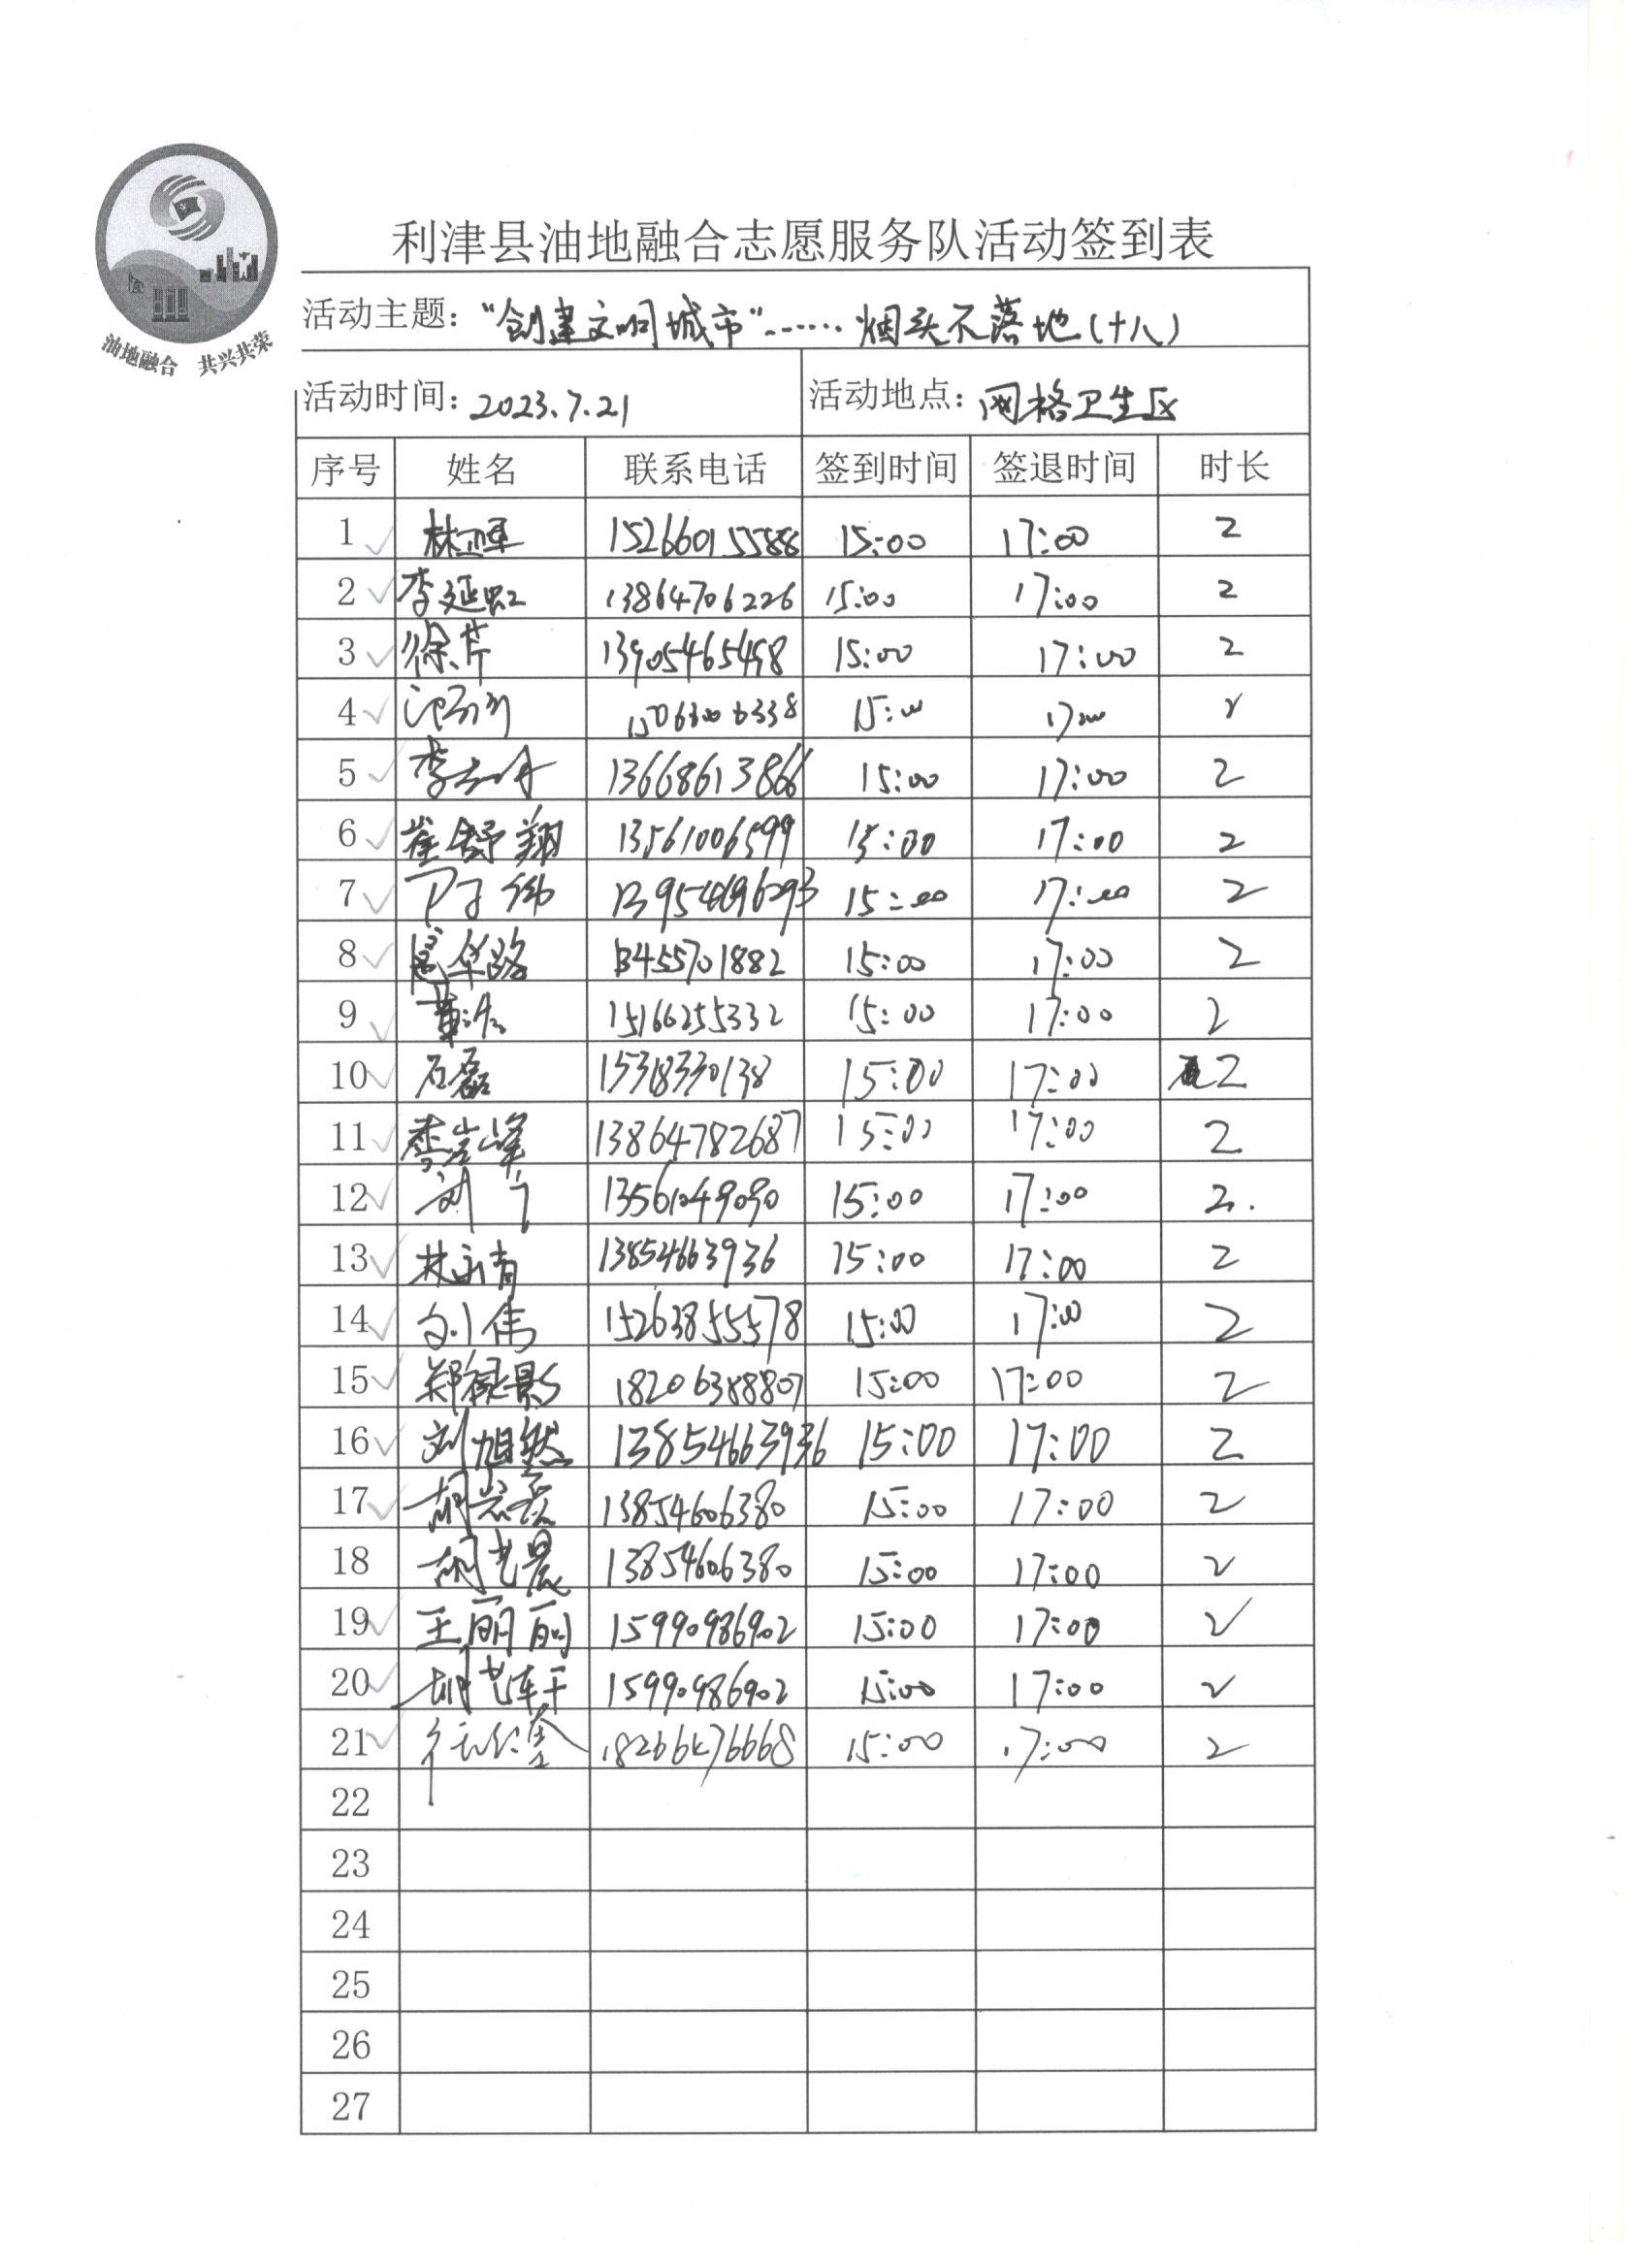 利津县油地融合志愿服务队活动签到表
油地融合 共兴共荣
活动主题："创建文明城市"……烟头不落地(十八)
活动时间：2023.7.21 活动地点：网格卫生区
序号 姓名 联系电话 签到时间 签退时间 时长
1 15266015588 15:00 17:00 2
2 李延虹 13864706226 15:00 17:00 2
3 徐芹 13905465498 15:00 17:00 2
4 15063006338 15:00 17:00 2
5 13668613866 15:00 17:00 2
6 崔舒翔 13561006599 15:00 17:00 2
7 13954696293 15:00 17:00 2
8 13455701882 15:00 17:00 2
9 15166255332 15:00 17:00 2
10 石磊 15318330138 15:00 17:00 2
11 李岩峰 13864782687 15:00 17:00 2
12 刘宁 13561049090 15:00 17:00 2.
13 林永青 13854663936 15:00 17:00 2
14 刘伟 15263855578 15:00 17:00 2
15 郑禄影 18206388807 15:00 17:00 2
16 刘旭然 13854663936 15:00 17:00 2
17 13854606380 15:00 17:00 2
18 胡艺晨 13854606380 15:00 17:00 2
19 王丽丽 15990986902 15:00 17:00 2
20 胡艺轩 15990986902 15:00 17:00 2
21 18266476668 15:00 17:00 2
22
23
24
25
26
27